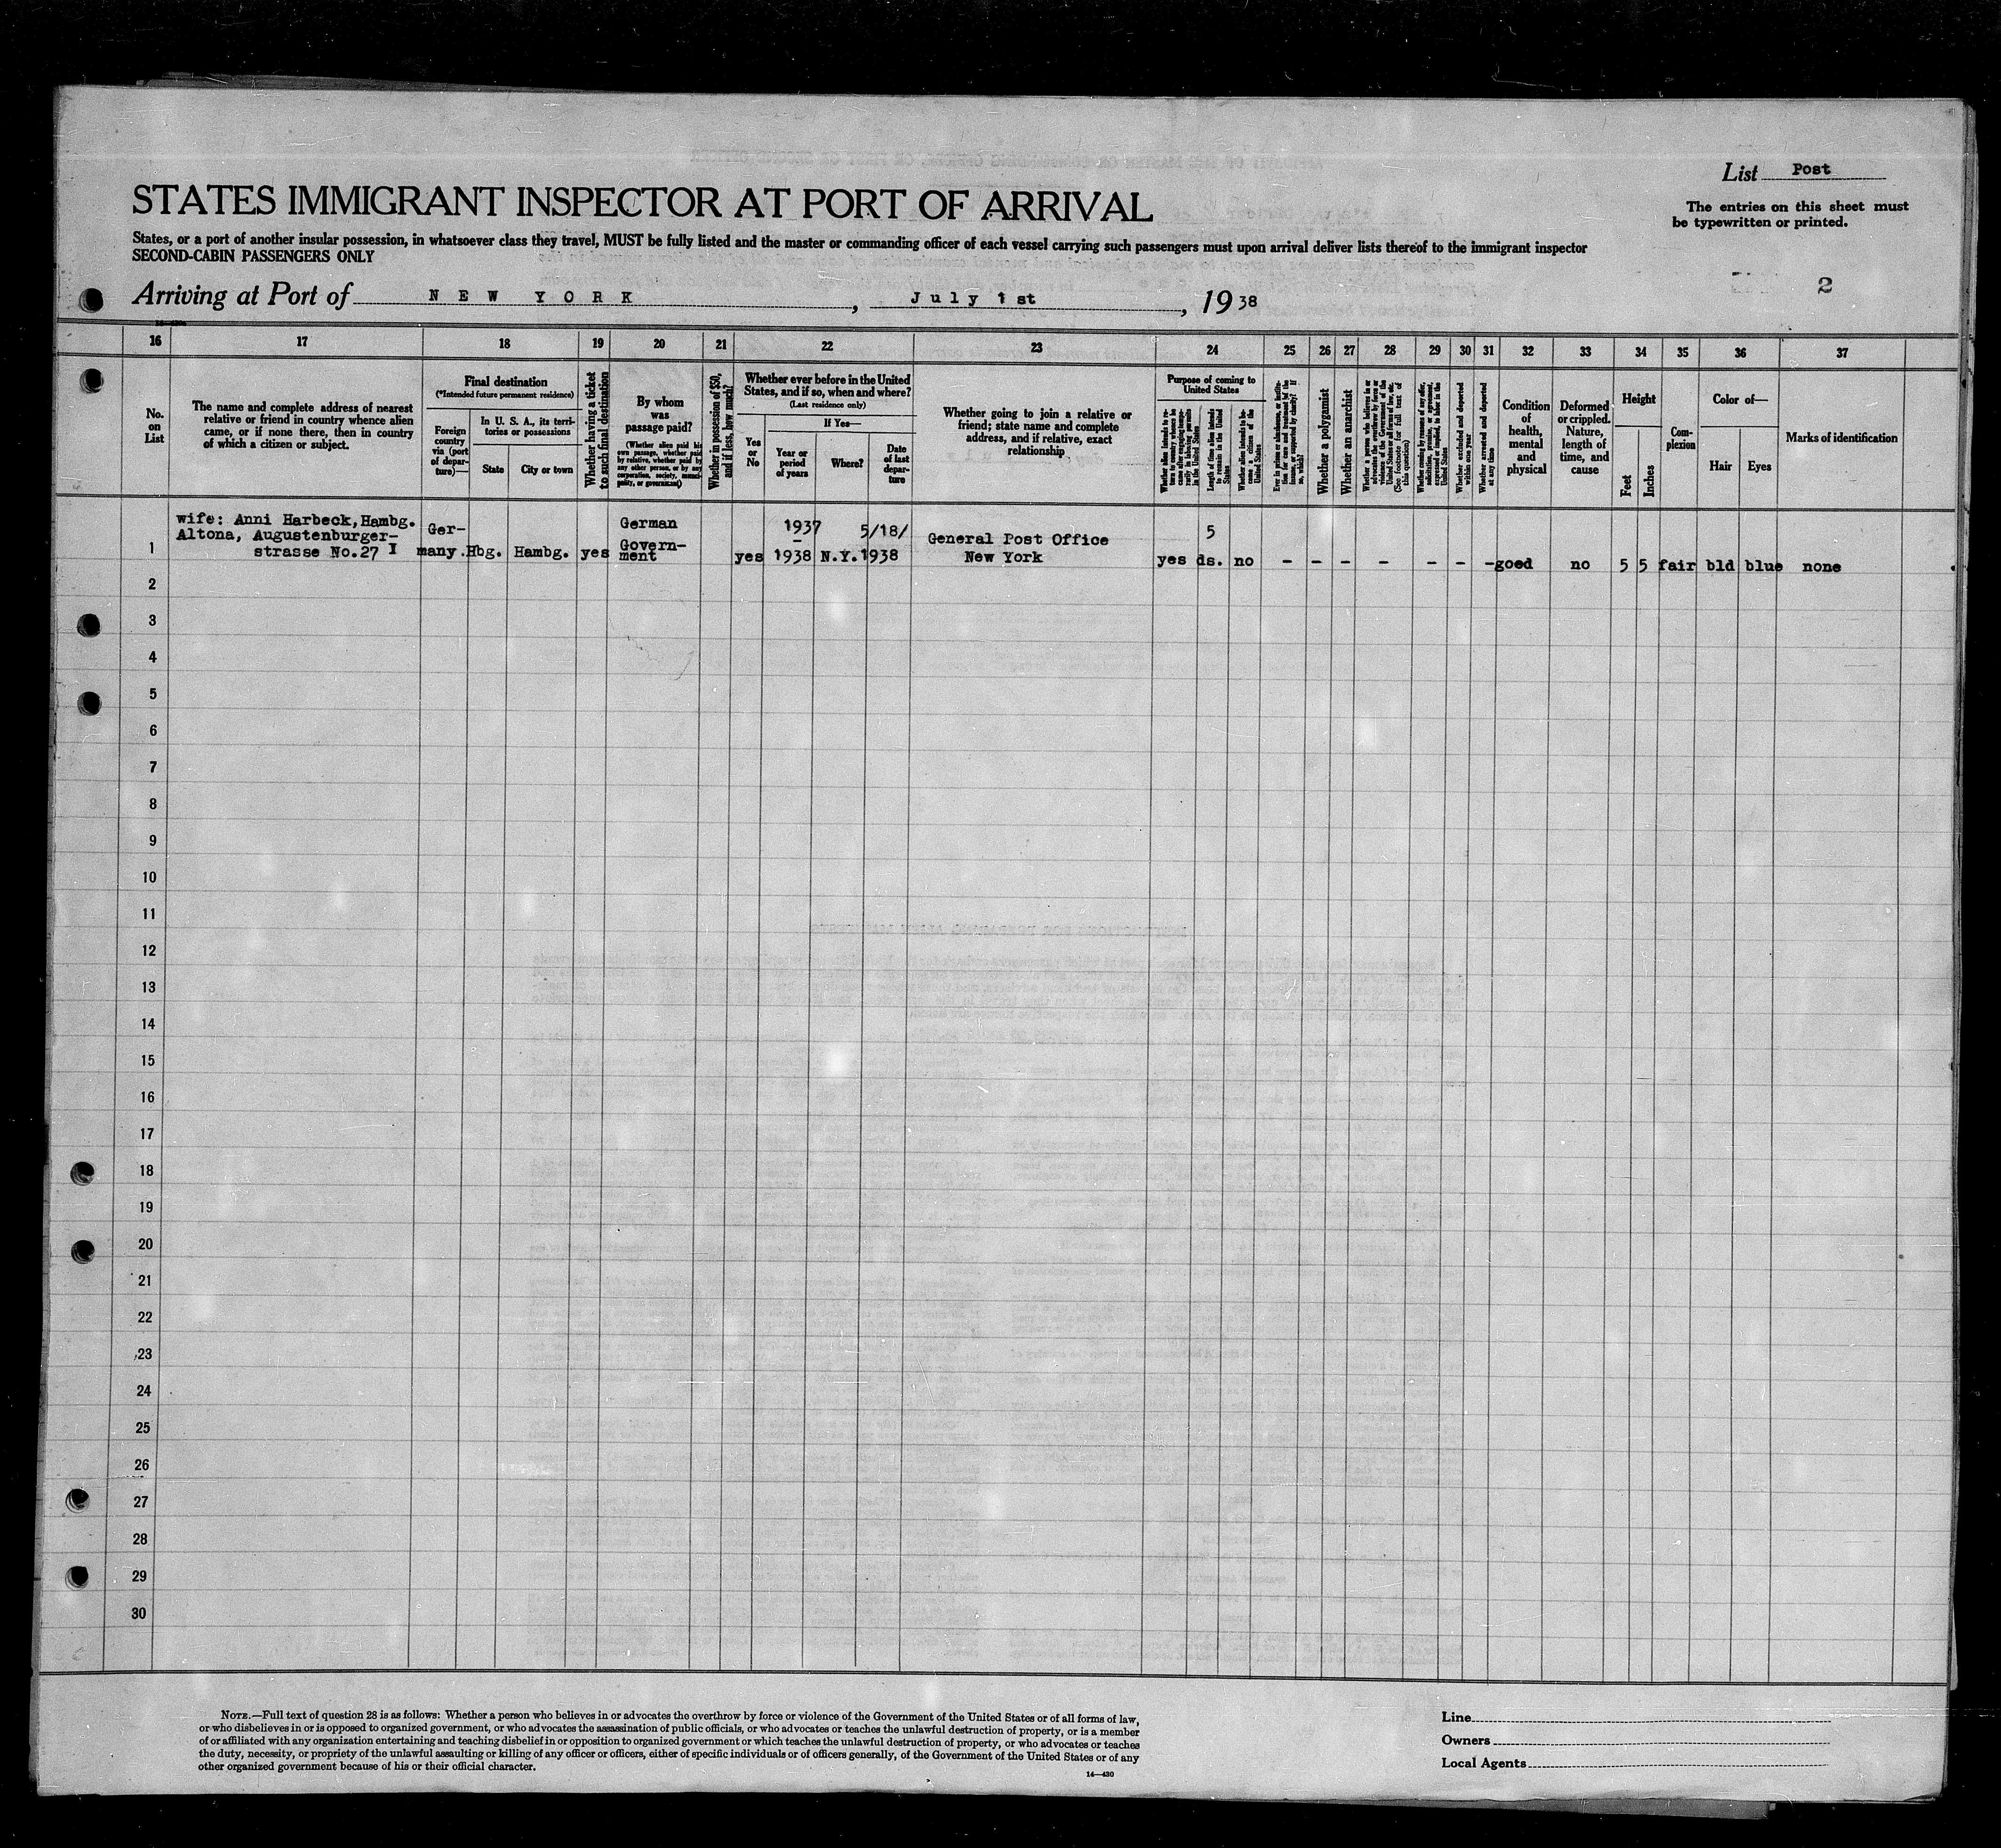 List Post
STATES IMMIGRANT INSPECTOR AT PORT OF ARRIVAL
The entries on this sheet must
be typewritten or printed.
States, or a port of another insular possession, in whatsoever class they travel, MUST be fully listed and the master or commanding officer of each vessel carrying such passengers must upon arrival deliver lists thereof to the immigrant inspector
SECOND-CABIN PASSENGERS ONLY
Arriving at Port of NEW YORK, July 1st, 1938
2
16 17 18 19 20 21 22 23 24 25 26 27 28 29 30 31 32 33 34 35 36 37
No.
on
List
The name and complete address of nearest
relative or friend in country whence alien
came, or if none there, then in country
of which a citizen or subject.
Final destination
(*Intended future permanent residence)
Foreign
country
via (port
of depar-
ture)—
In U. S. A., its terri-
tories or possessions
State
City or town
Whether having a ticket
to such final destination
By whom
was
passage paid?
(Whether alien paid his
own passage, whether paid
by relative, whether paid by
any other person, or by any
corporation, society, munici-
pality, or government)
Whether in possession of $50,
and if less, how much?
Whether ever before in the United
States, and if so, when and where?
(Last residence only)
Yes
or
No
If Yes—
Year or
period
of years
Where?
Date
of last
depar-
ture
Whether going to join a relative or
friend; state name and complete
address, and if relative, exact
relationship
Purpose of coming to
United States
Whether alien intends to re-
turn to country whence he
came after engaging tempo-
rarily in laboring pursuits
in the United States
Length of time alien intends
to remain in the United
States
Whether alien intends to be-
come a citizen of the
United States
Ever in prison or almshouse, or institu-
tion for care and treatment of the
insane, or supported by charity? If
so, which?
Whether a polygamist
Whether an anarchist
Whether a person who believes in or
advocates the overthrow by force or
violence of the Government of the
United States or all forms of law, etc.
(See footnote for full text of
this question)
Whether coming by reason of any offer,
solicitation, promise, or agreement,
expressed or implied, to labor in the
United States
Whether excluded and deported
within one year
Whether arrested and deported
at any time
Condition
of
health,
mental
and
physical
Deformed
or crippled.
Nature,
length of
time, and
cause
Height
Feet
Inches
Com-
plexion
Color of—
Hair
Eyes
Marks of identification
1
wife: Anni Harbeck,Hambg.
Altona, Augustenburger-
strasse No.27 I
Ger-
many.
Hbg.
Hambg.
yes
German
Govern-
ment
yes
1937
–
1938
N.Y.
5/18/
1938
General Post Office
New York
yes
5
ds.
no
– – – – – – –
good
no
5 5 fair bld blue none
2
3
4
5
6
7
8
9
10
11
12
13
14
15
16
17
18
19
20
21
22
23
24
25
26
27
28
29
30
NOTE.—Full text of question 28 is as follows: Whether a person who believes in or advocates the overthrow by force or violence of the Government of the United States or of all forms of law,
or who disbelieves in or is opposed to organized government, or who advocates the assassination of public officials, or who advocates or teaches the unlawful destruction of property, or is a member
of or affiliated with any organization entertaining and teaching disbelief in or opposition to organized government or which teaches the unlawful destruction of property, or who advocates or teaches
the duty, necessity, or propriety of the unlawful assaulting or killing of any officer or officers, either of specific individuals or of officers generally, of the Government of the United States or of any
other organized government because of his or their official character.
14—430
Line
Owners
Local Agents